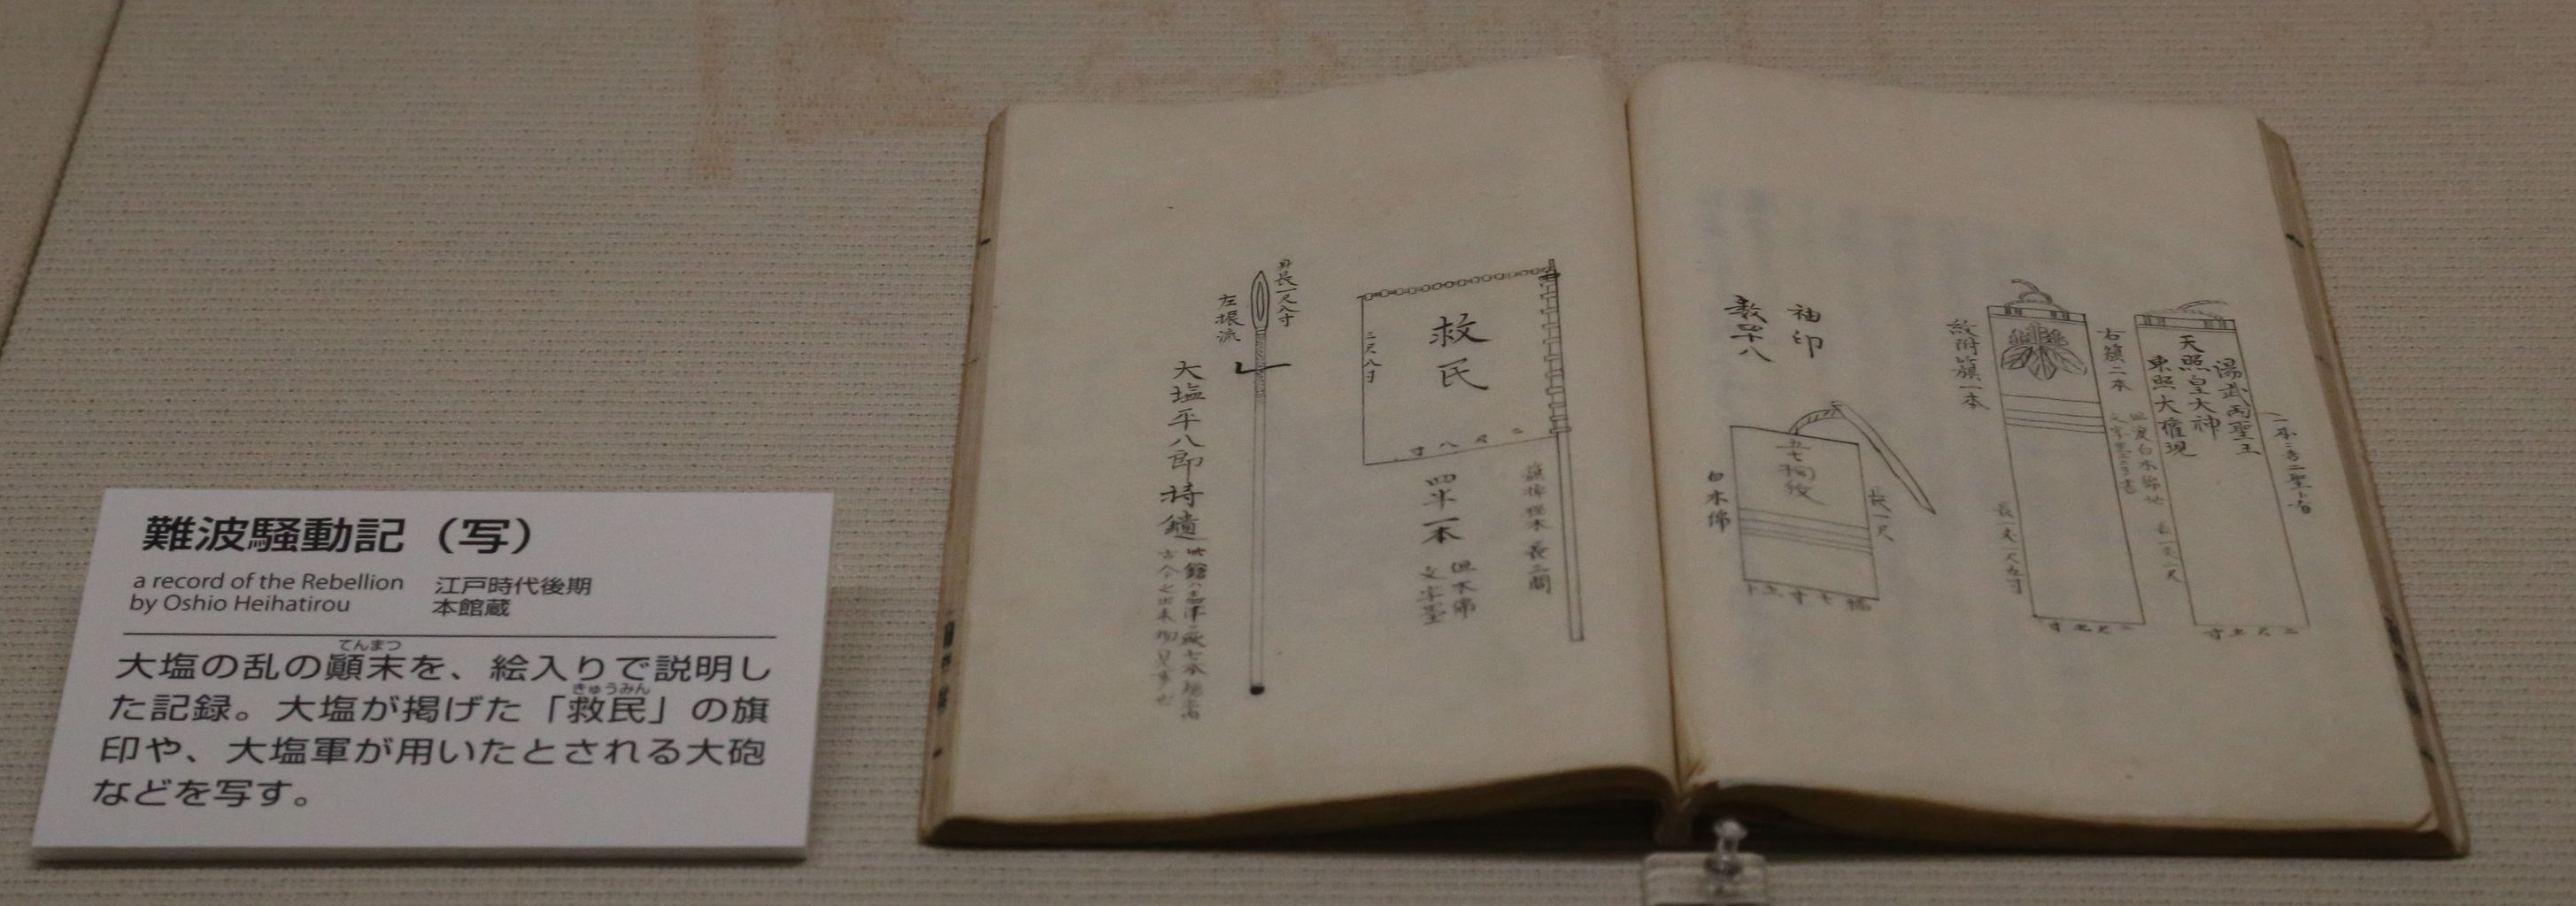 難波騒動記（写）
a record of the Rebellion
by Oshio Heihatirou
江戸時代後期
本館蔵
大塩の乱の顚末を、絵入りで説明し
てんまつ
た記録。大塩が掲げた「救民」の旗
きゅうみん
印や、大塩軍が用いたとされる大砲
などを写す。
湯武両聖王
天照皇大神
東照大権現
右籏二本
紋附籏一本
袖印
数四十八
五七桐紋
長一尺
白木綿
救民
二尺八寸
二尺八寸
四半一本
但木綿
文字墨
長一尺八寸
左振流
大塩平八郎持鎗